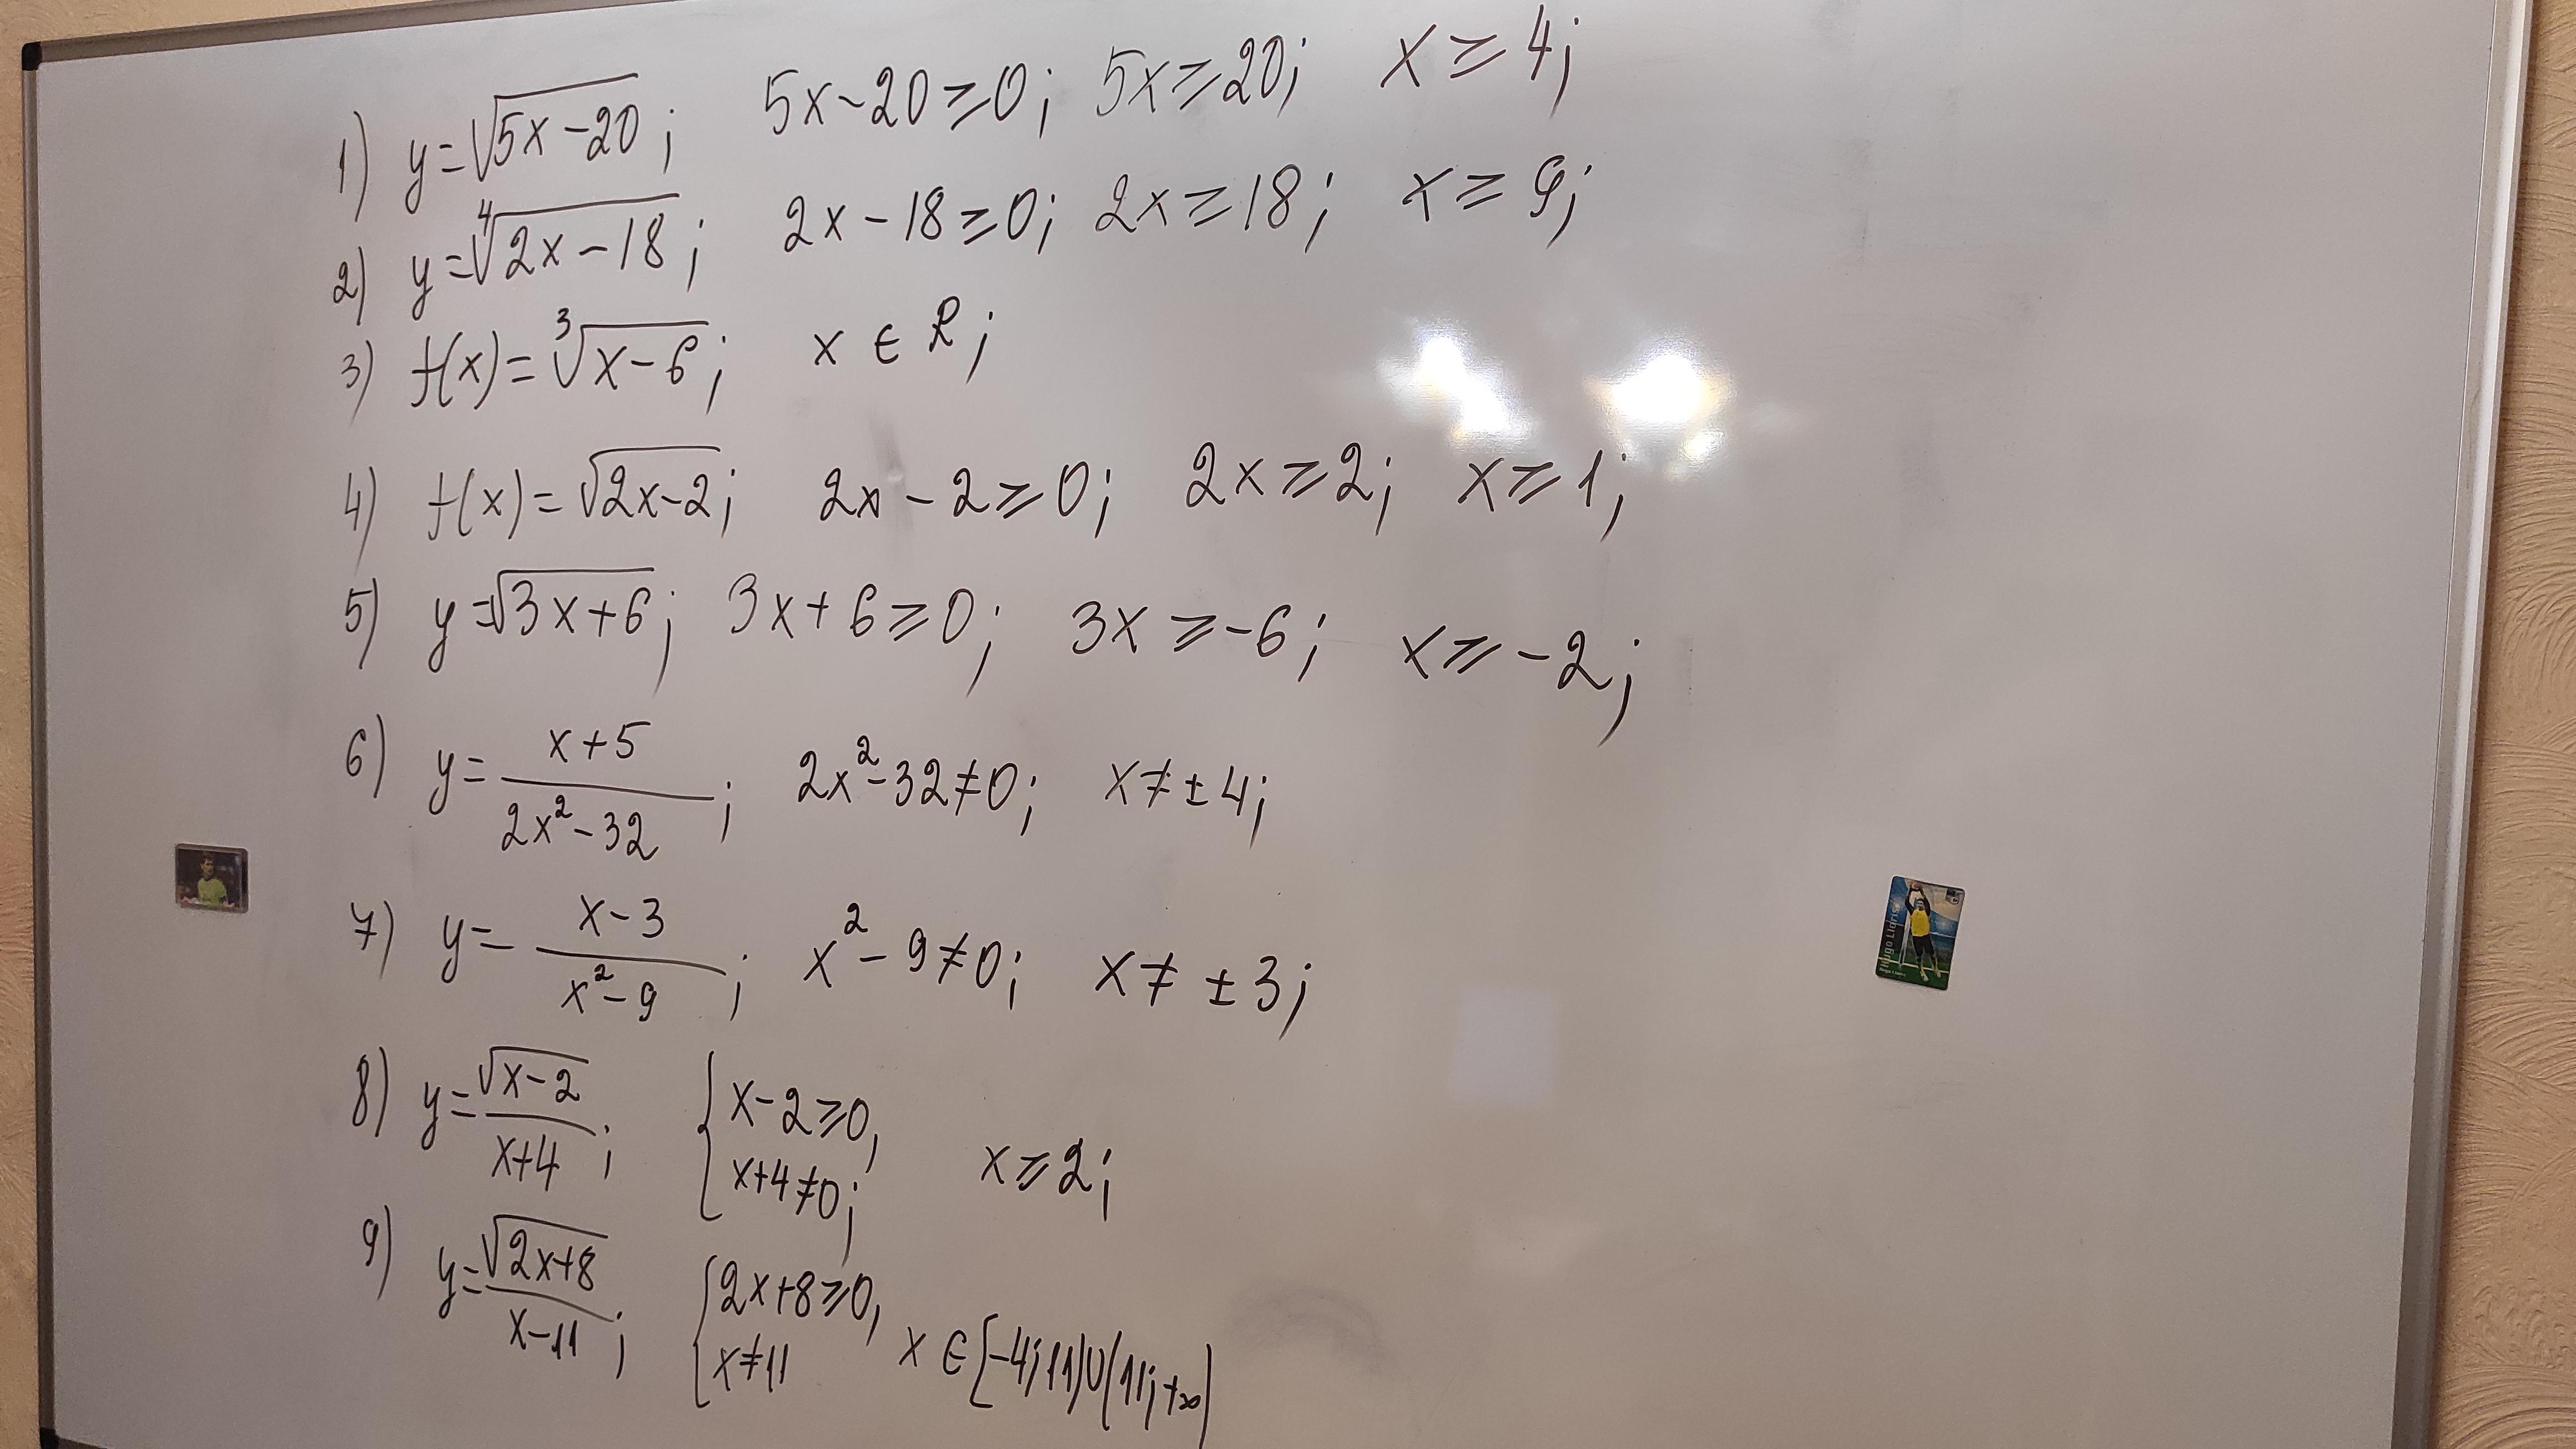 1) y=√(5x-20); 5x-20≥0; 5x≥20; x≥4;
2) y=⁴√(2x-18); 2x-18≥0; 2x≥18; x≥9;
3) f(x)=³√(x-6); x∈R;
4) f(x)=√(2x-2); 2x-2≥0; 2x≥2; x≥1;
5) y=√(3x+6); 3x+6≥0; 3x≥-6; x≥-2;
6) y=(x+5)/(2x²-32); 2x²-32≠0; x≠±4;
7) y=(x-3)/(x²-9); x²-9≠0; x≠±3;
8) y=√(x-2)/(x+4); {x-2≥0, x+4≠0; x≥2;
9) y=√(2x+8)/(x-11); {2x+8≥0, x≠11 x∈[-4;11)∪(11;+∞)
Hugo Lloris